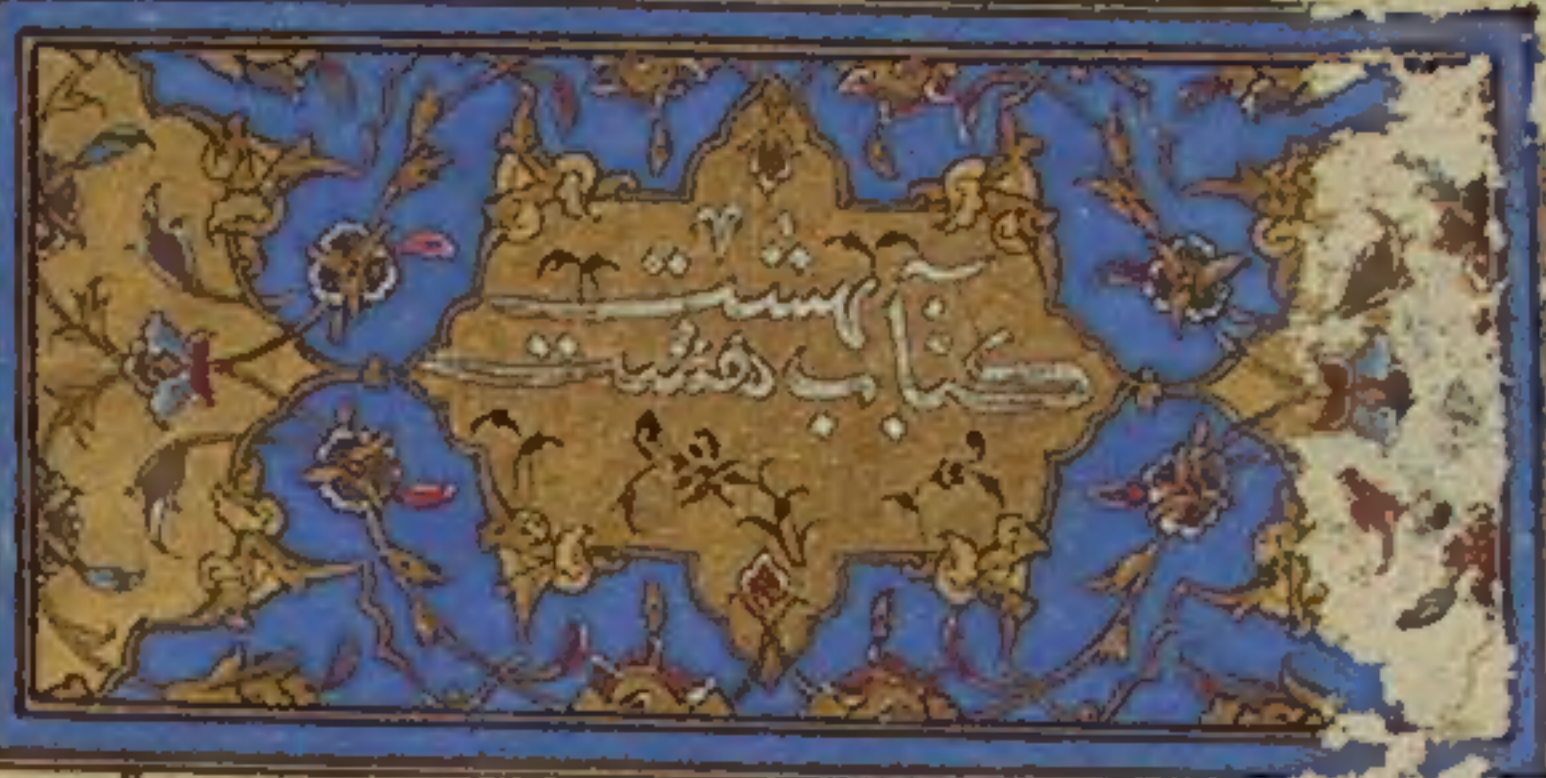 کتاب هشت
بهشت